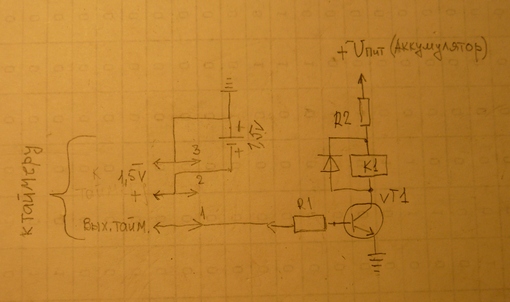 + Uпит (Аккумулятор)
R2
К1
VT1
R1
+
+
1,5V
3
1,5V
2
+
1
Вых. тайм.
к таймеру